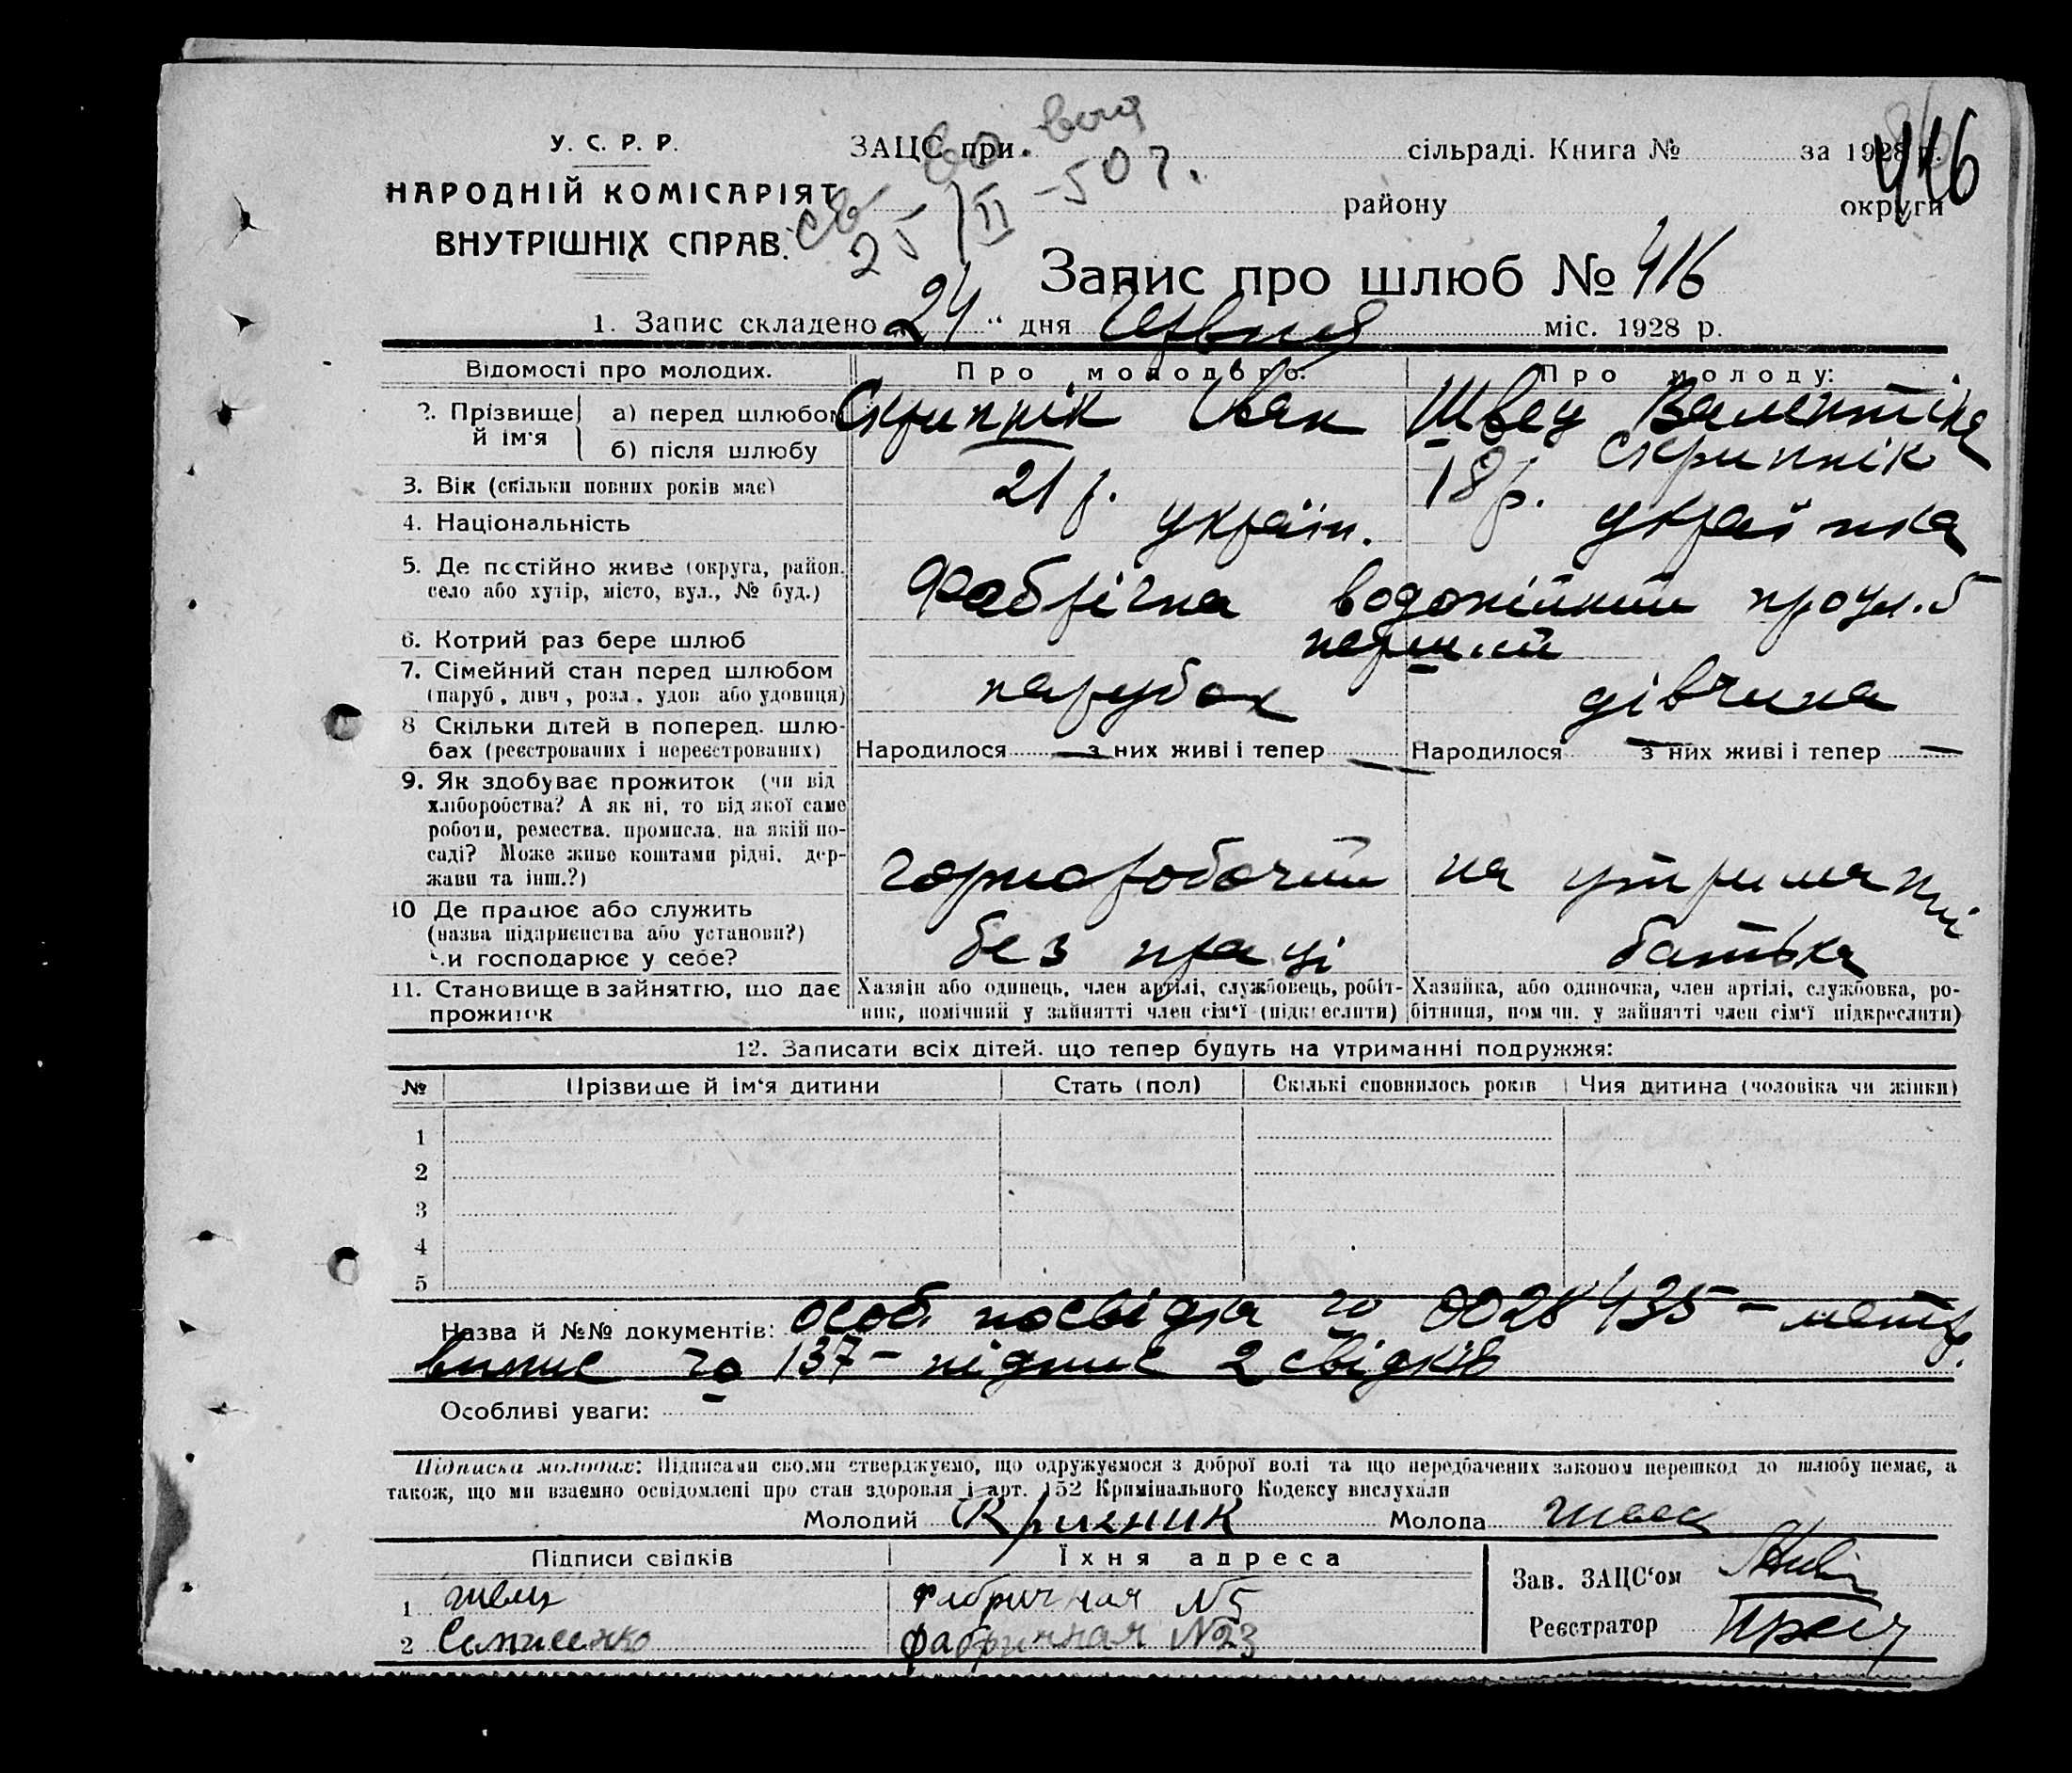 У. С. Р. Р.
НАРОДНІЙ КОМІСАРІЯТ
ВНУТРІШНІХ СПРАВ.
ЗАЦС при сільраді. Книга № за 1928 р.
416
району округи
25/II-50 г.
Запис про шлюб № 416
1. Запис складено „24“ дня Червня міс. 1928 р.
Відомості про молодих. Про молодого: Про молоду:
2. Прізвище й ім'я а) перед шлюбом Скрипнік Іван Швец Валентіна
б) після шлюбу Скрипнік
3. Вік (скільки повних років має) 21 р. 18 р.
4. Національність україн. українка
5. Де постійно живе (округа, район, Фабрічна водопійний проул. 5
село або хутір, місто, вул., № буд.)
6. Котрий раз бере шлюб перший
7. Сімейний стан перед шлюбом парубок дівчина
(паруб, дівч, розл, удов або удовиця)
8 Скільки дітей в поперед. шлю-
бах (реєстрованих і нереєстрованих) Народилося — з них живі і тепер — Народилося — з них живі і тепер —
9. Як здобуває прожиток (чи від
хліборобства? А як ні, то від якої саме
роботи, ремества, промисла, на якій по-
саді? Може живе коштами рідні, дер-
жави та інш.?) горноробочий на утриманні
10 Де працює або служить
(назва підприємства або установи?) без праці батька
Чи господарює у себе?
11. Становище в зайняттю, що дає Хазяїн або одинець, член артілі, службовець, робіт- Хазяйка, або одиночка, член артілі, службовка, ро-
прожиток ник, помічний у зайнятті член сім'ї (підкреслити) бітниця, пом чн. у зайнятті член сім'ї підкреслити)
12. Записати всіх дітей, що тепер будуть на утриманні подружжя:
№ Прізвище й ім'я дитини Стать (пол) Скількі сповнилось років Чия дитина (чоловіка чи жінки)
1
2
3
4
5
Назва й №№ документів: особ. посвідка № 0028435 – метр.
випис № 137 – підпис 2 свідків
Особливі уваги:
Підписка молодих: Підписами своїми стверджуємо, що одружуємося з доброї волі та що передбачених законом перешкод до шлюбу немає, а
також, що ми взаємно освідомлені про стан здоровля і арт. 152 Кримінального Кодексу вислухали
Молодий Молода Швец
Підписи свідків Їхня адреса
Зав. ЗАЦС'ом
1 Швец Фабричная № 5
Реєстратор
2 Фабричная № 23